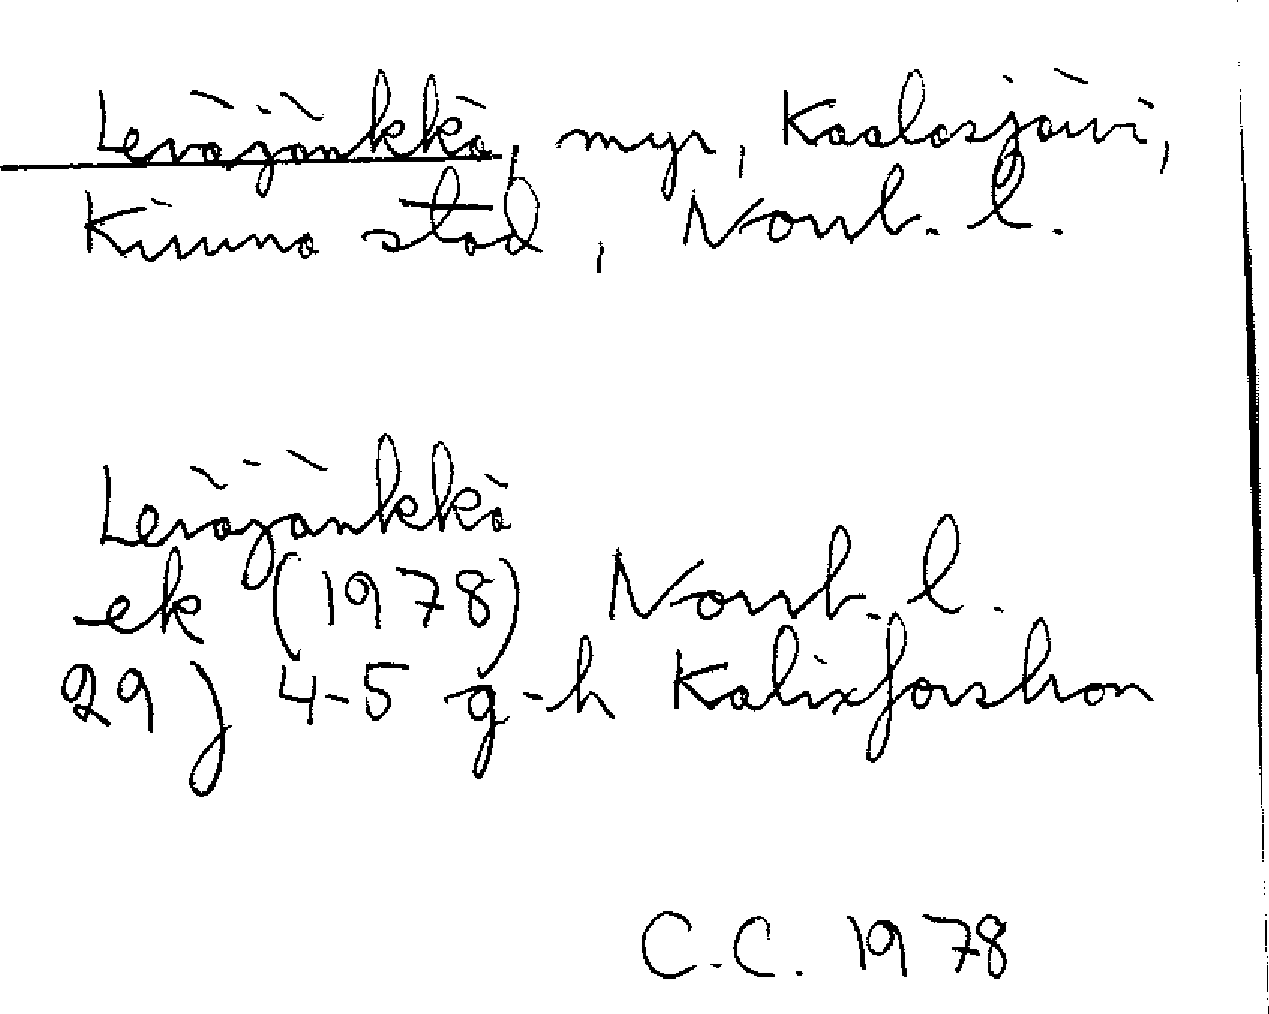 Leväjänkkä, myr, Kaalasjärvi,
Kiruna stad, Norrb. l.
Leväjänkkä
ek (1978) Norrb. l.
29 J 4-5 g-h Kalixforsbron
C.C. 1978